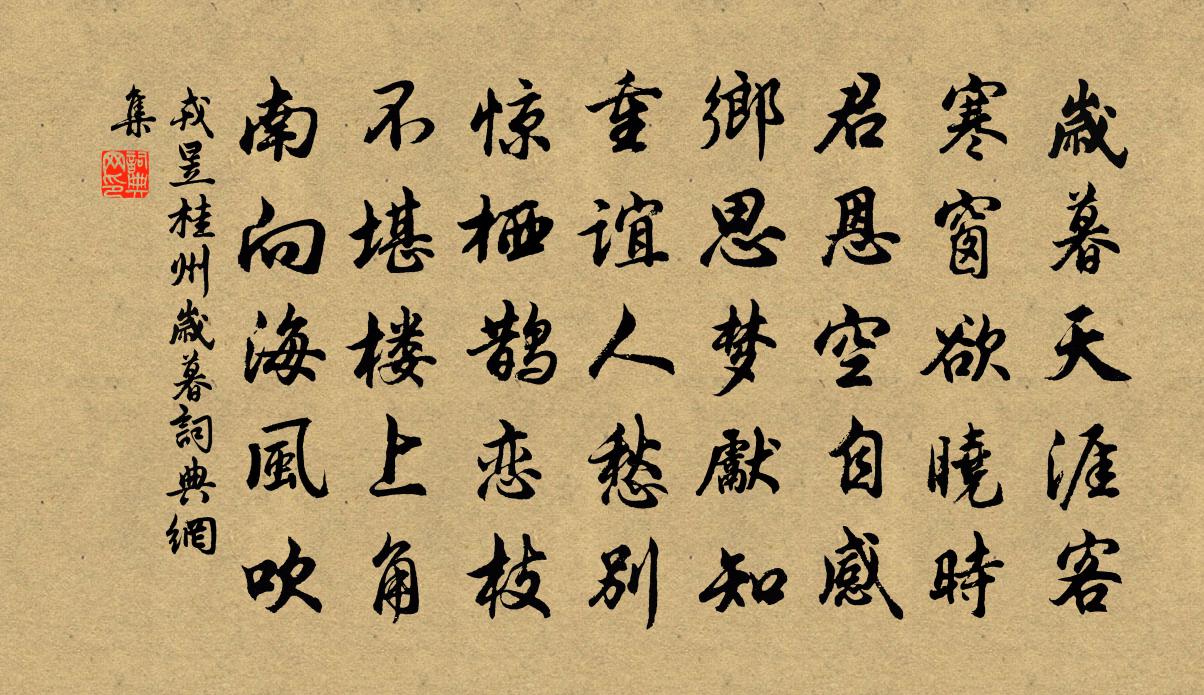 歲暮天涯客
寒窗欲曉時
君恩空自感
鄉思梦獻知
重谊人愁別
惊栖鹊恋枝
不堪楼上角
南向海風吹
戎昱桂州歲暮詞典網
集
詞典
网印